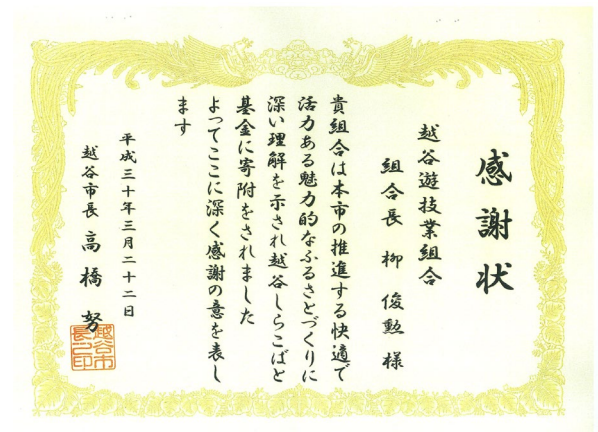 感謝状
越谷遊技業組合
組合長 柳 俊勲 様
貴組合は本市の推進する快適で
活力ある魅力的なふるさとづくりに
深い理解を示され越谷しらこばと
基金に寄附をされました
よってここに深く感謝の意を表し
ます
平成三十年三月二十二日
越谷市長 高橋 努
越谷市
長之印